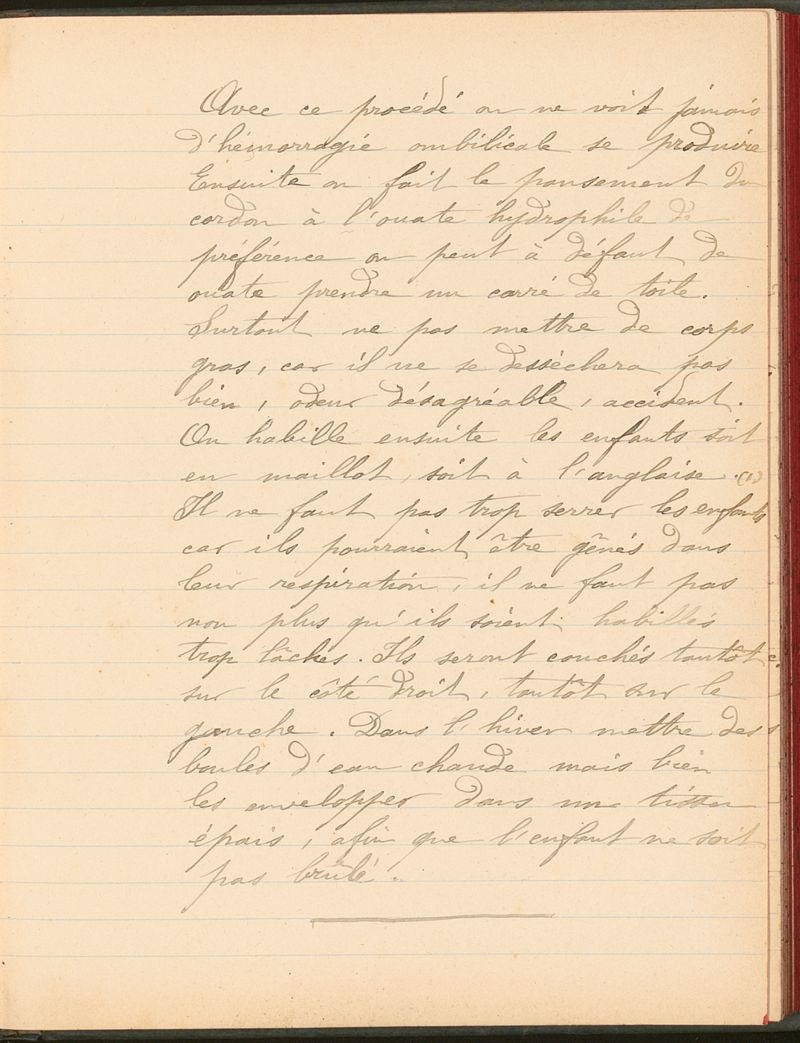 Avec ce procédé on ne voit jamais
d'hémorragie ombilicale se produire
Ensuite on fait le pansement du
cordon à l'ouate hydrophile de
préférence on peut à défaut de
ouate prendre un carré de toile.
Surtout ne pas mettre de corps
gras, car il ne se dessèchera pas
bien, odeur désagréable, accident.
On habille ensuite les enfants soit
en maillot, soit à l'anglaise. (1)
Il ne faut pas trop serrer les enfants
car ils pourraient être gênés dans
leur respiration, il ne faut pas
non plus qu'ils soient habillés
trop lâches. Ils seront couchés tantôt
sur le côté droit, tantôt sur le
gauche. Dans l'hiver mettre des
boules d'eau chaude mais bien
les envelopper dans un tissu
épais, afin que l'enfant ne soit
pas brûlé.